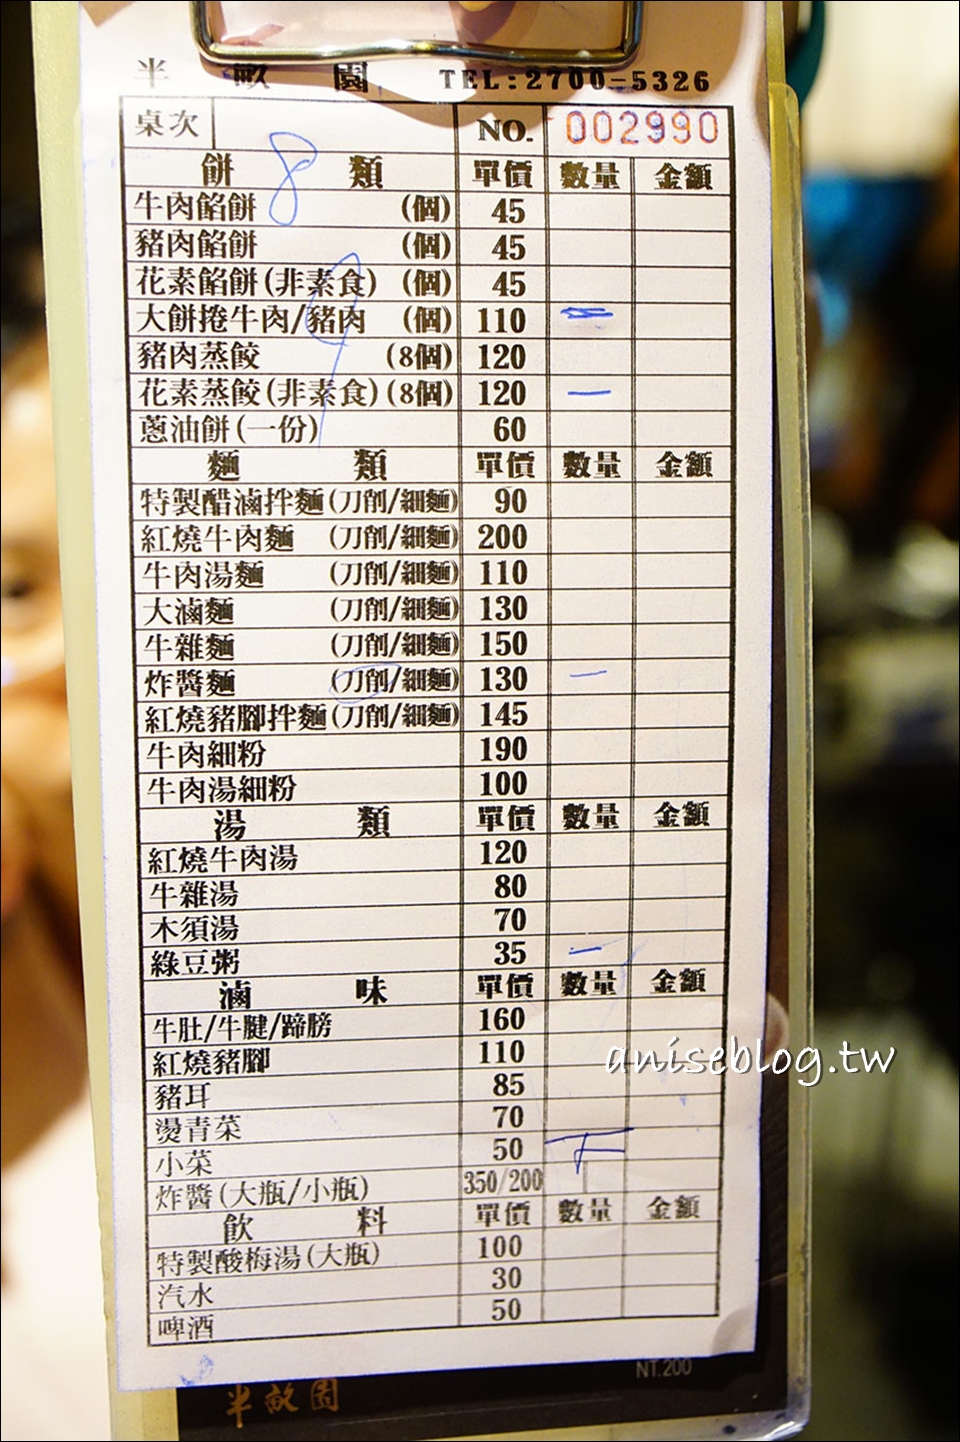 半畝園 TEL:2700-5326
桌次 NO. 002990
8
9
餅類 單價 數量 金額
牛肉餡餅 (個) 45
豬肉餡餅 (個) 45
花素餡餅(非素食) (個) 45
大餅捲牛肉/豬肉 (個) 110
豬肉蒸餃 (8個) 120
花素蒸餃(非素食)(8個) 120 一
蔥油餅(一份) 60
麵類 單價 數量 金額
特製醋滷拌麵(刀削/細麵) 90
紅燒牛肉麵 (刀削/細麵) 200
牛肉湯麵 (刀削/細麵) 110
大滷麵 (刀削/細麵) 130
牛雜麵 (刀削/細麵) 150
炸醬麵 (刀削/細麵) 130 一
紅燒豬腳拌麵(刀削/細麵) 145
牛肉細粉 190
牛肉湯細粉 100
湯類 單價 數量 金額
紅燒牛肉湯 120
牛雜湯 80
木須湯 70
綠豆粥 35 一
滷味 單價 數量 金額
牛肚/牛腱/蹄膀 160
紅燒豬腳 110
豬耳 85
燙青菜 70
小菜 50 下
炸醬(大瓶/小瓶) 350/200
飲料 單價 數量 金額
特製酸梅湯(大瓶) 100
汽水 30
啤酒 50
NT.200
半畝園
aniseblog.tw